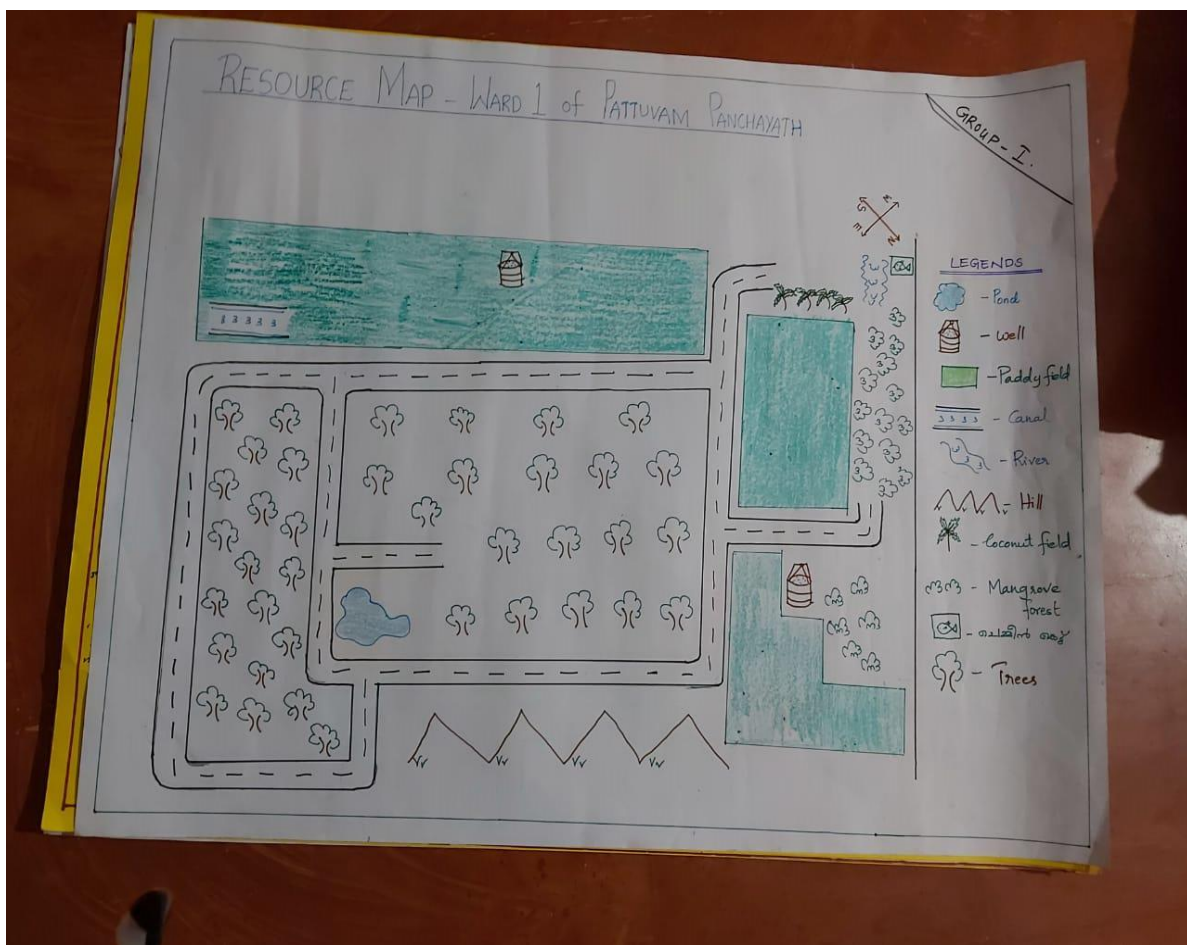 RESOURCE MAP - WARD 1 of PATTUVAM PANCHAYATH
GROUP - I.
S
N
E
LEGENDS
- Pond
- well
- Paddy field
- Canal
- River
- Hill
- Coconut field
- Mangrove
forest
- ചെമ്മീൻ കെട്ട്
- Trees